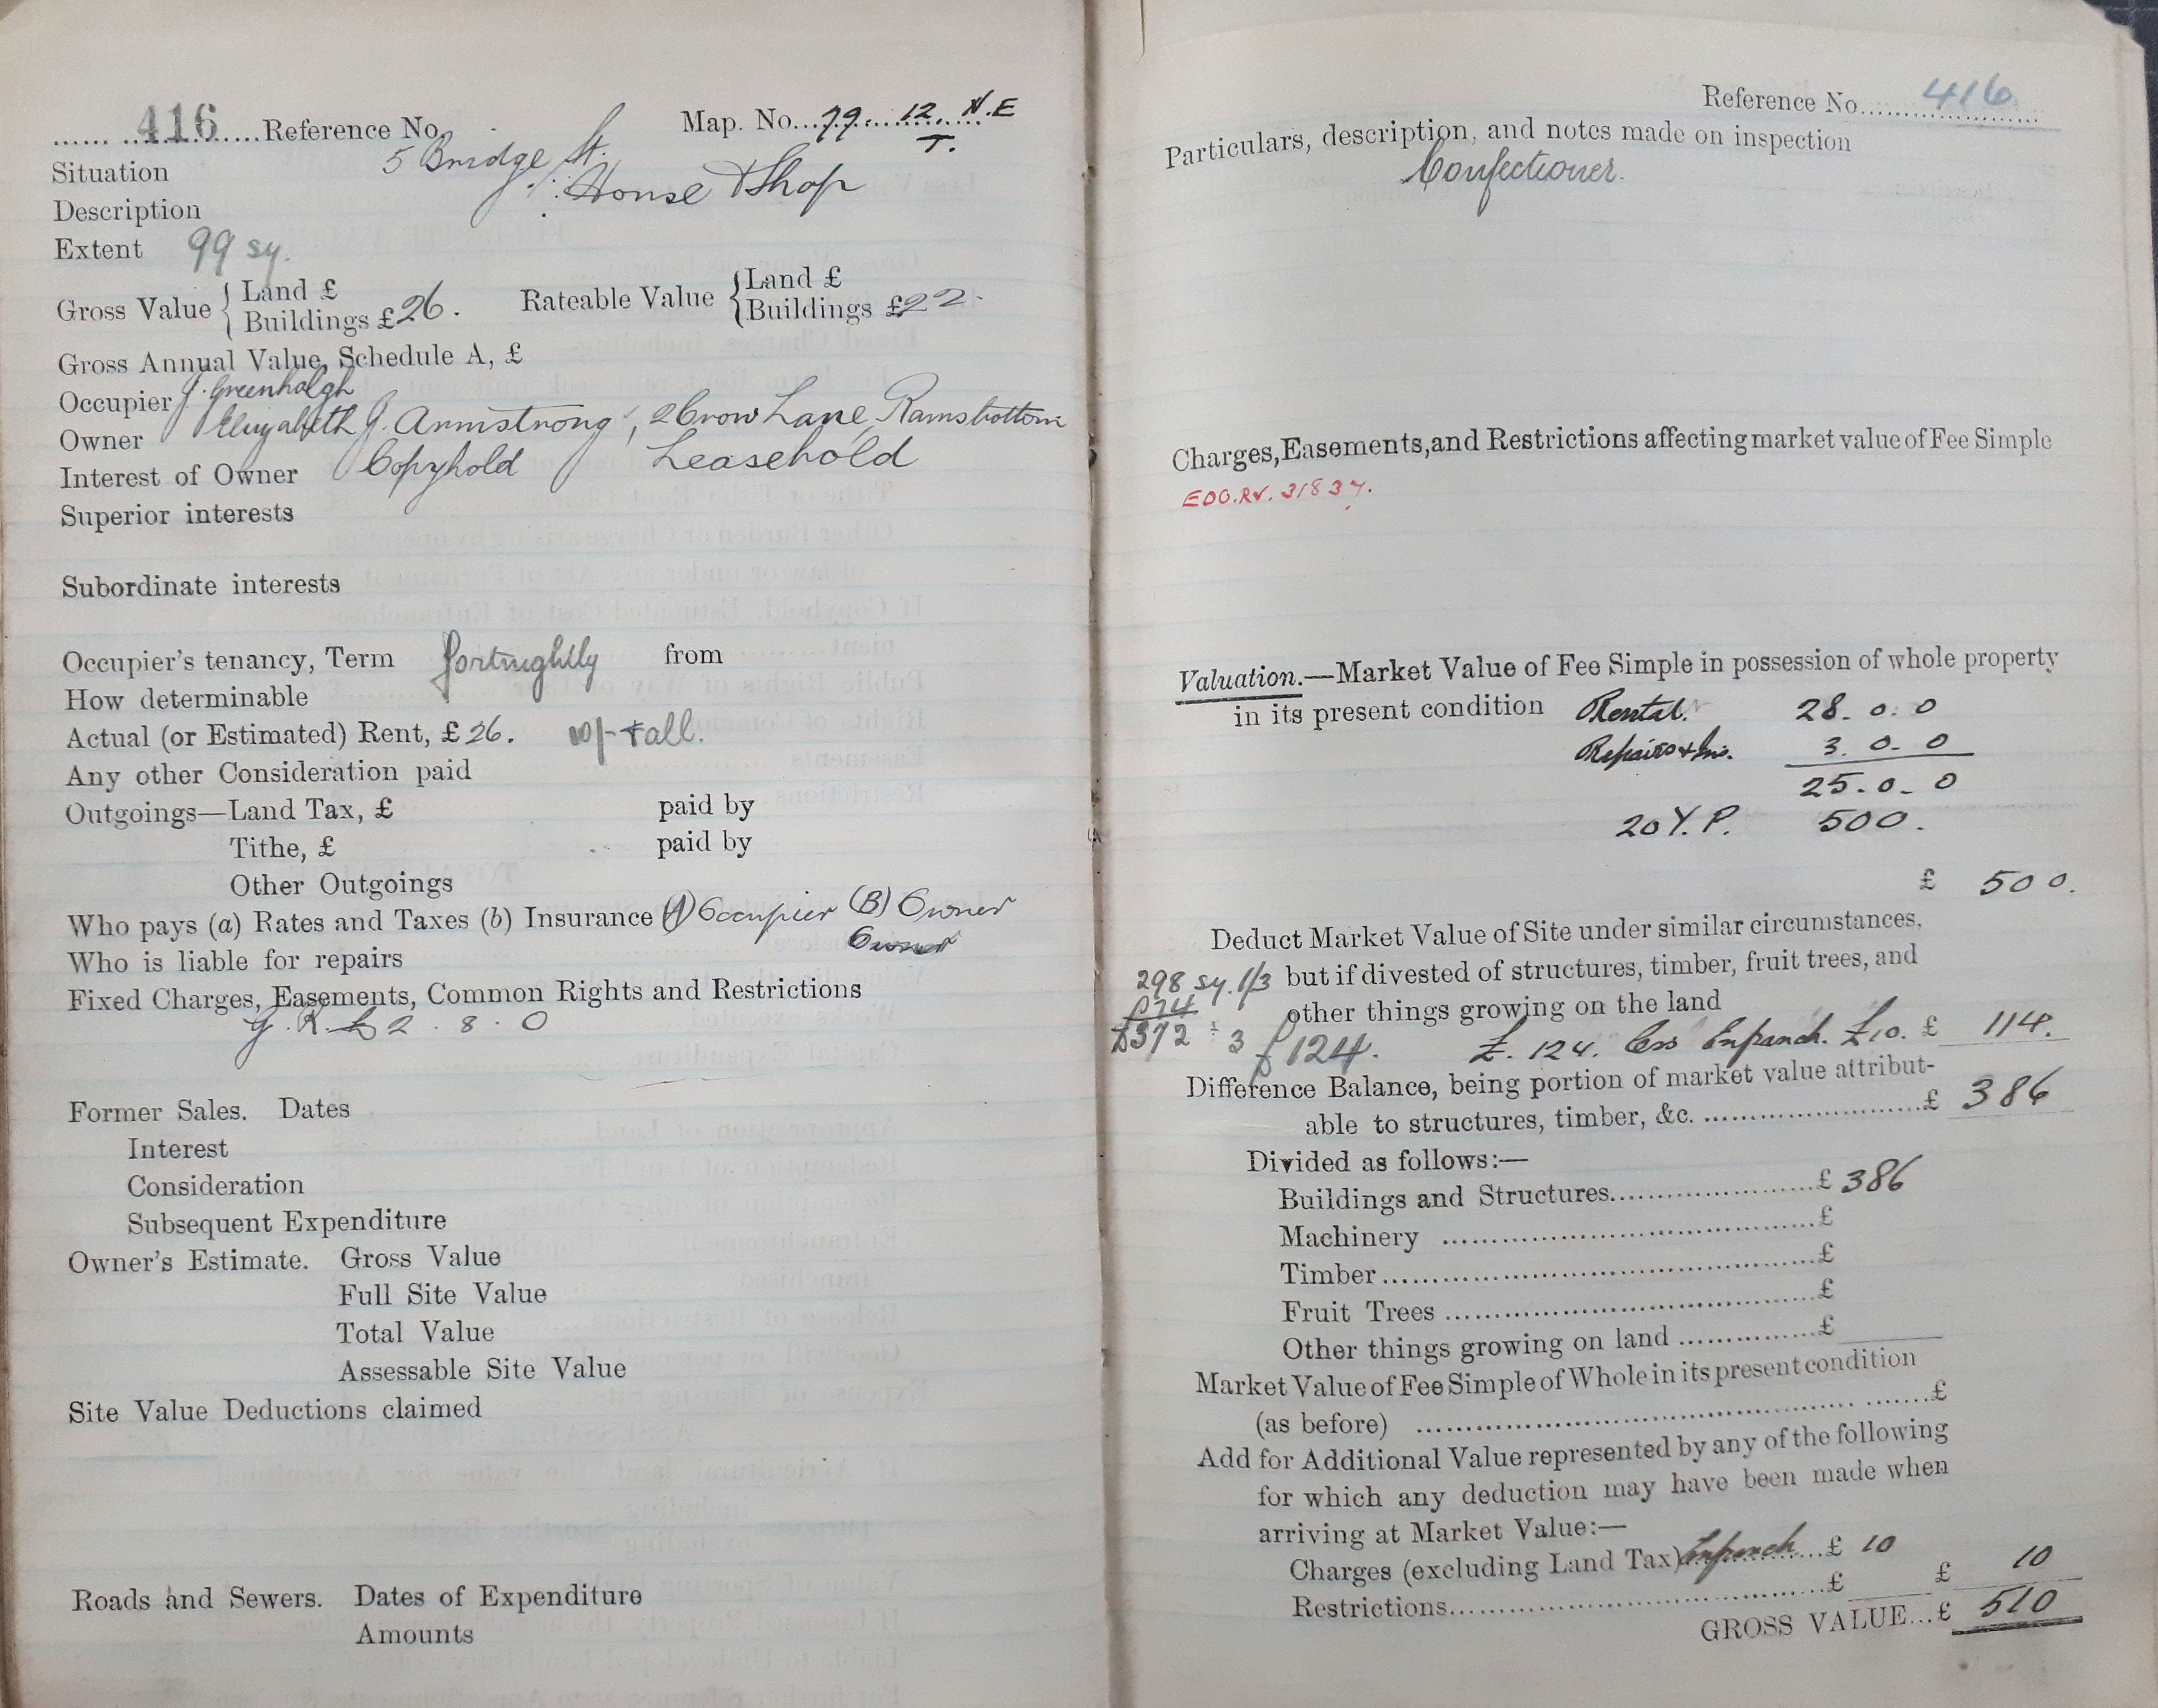 416 Reference No. Map. No. 79. 12. N.E
T.
Situation 5 Bridge St.
Description House & Shop
Extent 99 sy.
Gross Value { Land £
Buildings £ 26. Rateable Value { Land £
Buildings £ 22.
Gross Annual Value, Schedule A, £
Occupier J. Greenhalgh
Owner Elizabeth J. Armstrong, 2 Crow Lane, Ramsbottom
Interest of Owner Copyhold Leasehold
Superior interests
Subordinate interests
Occupier's tenancy, Term fortnightly from
How determinable
Actual (or Estimated) Rent, £ 26. 10/- + all.
Any other Consideration paid
Outgoings—Land Tax, £ paid by
Tithe, £ paid by
Other Outgoings
Who pays (a) Rates and Taxes (b) Insurance (A) Occupier (B) Owner
Who is liable for repairs Owner
Fixed Charges, Easements, Common Rights and Restrictions
G. R. £2. 8. 0
Former Sales. Dates
Interest
Consideration
Subsequent Expenditure
Owner's Estimate. Gross Value
Full Site Value
Total Value
Assessable Site Value
Site Value Deductions claimed
Roads and Sewers. Dates of Expenditure
Amounts
Reference No. 416
Particulars, description, and notes made on inspection
Confectioner.
Charges, Easements, and Restrictions affecting market value of Fee Simple
EDO.RV. 31837.
Valuation.—Market Value of Fee Simple in possession of whole property
in its present condition Rental. 28. 0. 0
Repairs & Ins. 3. 0. 0
25. 0. 0
20 Y. P. 500.
£ 500.
Deduct Market Value of Site under similar circumstances,
298 sy. but if divested of structures, timber, fruit trees, and
£74 other things growing on the land
£372 ÷ 3 £124. £. 124. less Enfranch. £10. £ 114.
Difference Balance, being portion of market value attribut-
able to structures, timber, &c. £ 386
Divided as follows:—
Buildings and Structures £ 386
Machinery £
Timber £
Fruit Trees £
Other things growing on land £
Market Value of Fee Simple of Whole in its present condition
(as before) £
Add for Additional Value represented by any of the following
for which any deduction may have been made when
arriving at Market Value:—
Charges (excluding Land Tax) Enfranch £ 10
Restrictions £ £ 10
GROSS VALUE...£ 510